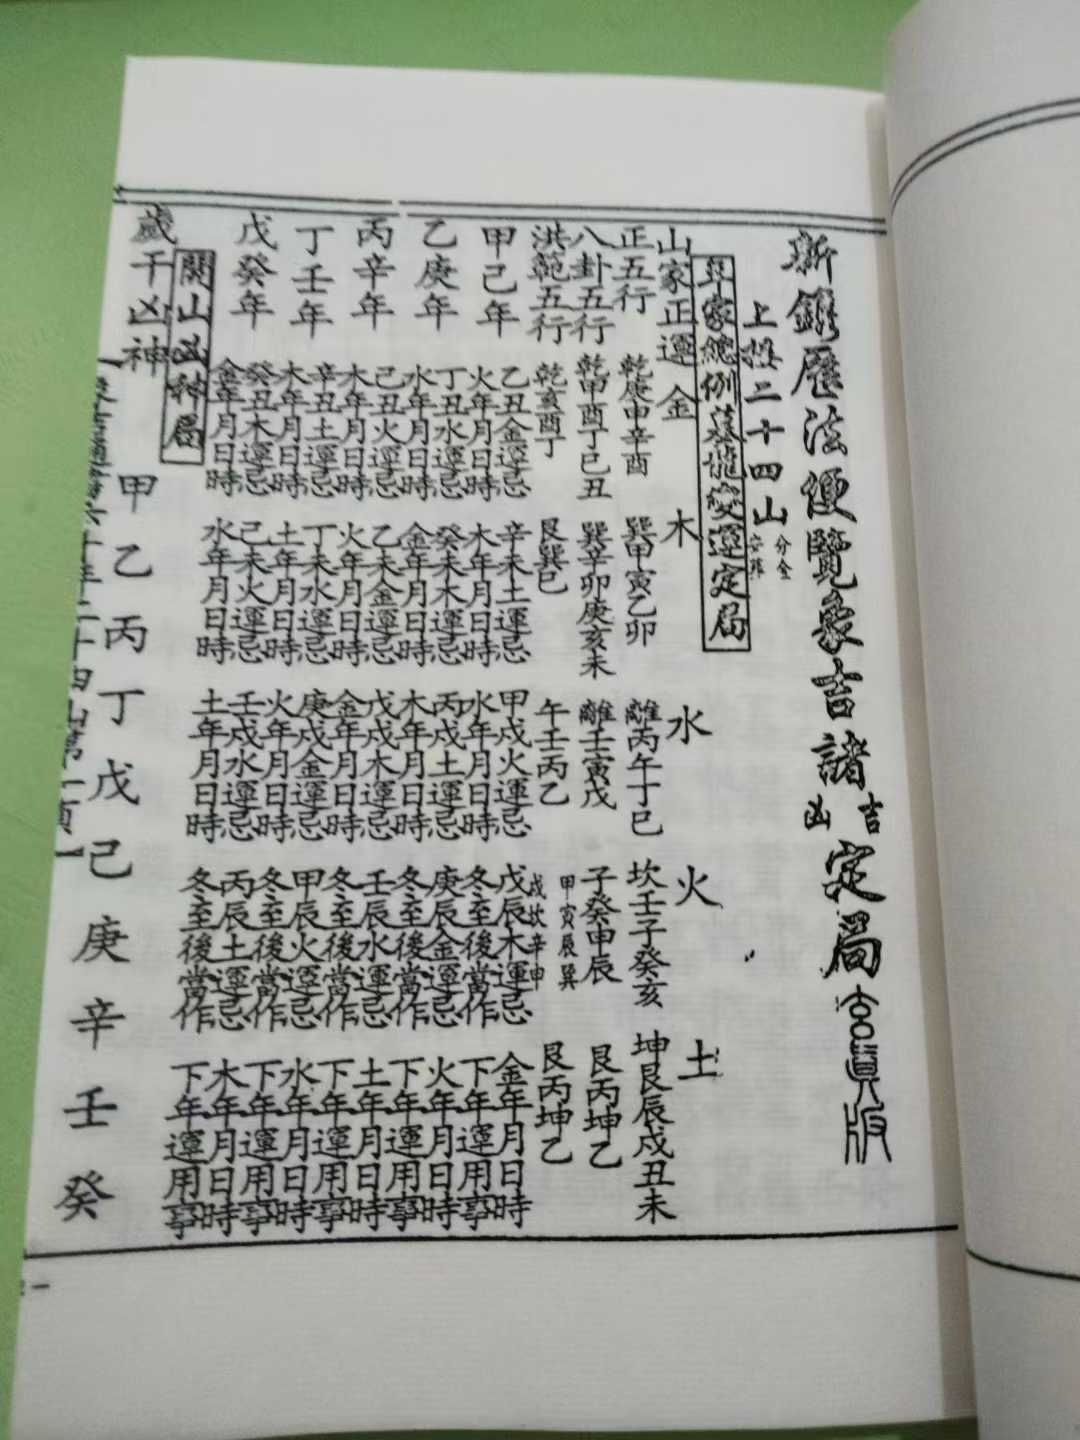 新鐫曆法便覽象吉諸吉凶定局官真版
上按二十四山分金安葬
山家總例墓龍變運定局
山家正運 金 木 水 火 土
正五行 乾庚申辛酉 巽甲寅乙卯 離丙午丁巳 坎壬子癸亥 坤艮辰戌丑未
八卦五行 乾甲酉丁巳丑 巽辛卯庚亥未 離壬寅戊 子癸申辰 艮丙坤乙
洪範五行 乾亥酉丁 艮巽巳 午壬丙乙 甲寅辰巽戌坎辛申 艮丙坤乙
甲己年 乙丑金運忌火年月日時 辛未土運忌木年月日時 甲戌火運忌水年月日時 戊辰木運忌金年月日時 冬至後當作下年運用事
乙庚年 丁丑水運忌水年月日時 癸未木運忌金年月日時 丙戌土運忌木年月日時 庚辰金運忌火年月日時 冬至後當作下年運用事
丙辛年 己丑火運忌木年月日時 乙未金運忌火年月日時 戊戌木運忌金年月日時 壬辰水運忌土年月日時 冬至後當作下年運用事
丁壬年 辛丑土運忌木年月日時 丁未水運忌土年月日時 庚戌金運忌火年月日時 甲辰火運忌水年月日時 冬至後當作下年運用事
戊癸年 癸丑木運忌金年月日時 己未火運忌水年月日時 壬戌水運忌土年月日時 丙辰土運忌木年月日時 冬至後當作下年運用事
開山凶神局
歲干凶神 甲 乙 丙 丁 戊 己 庚 辛 壬 癸